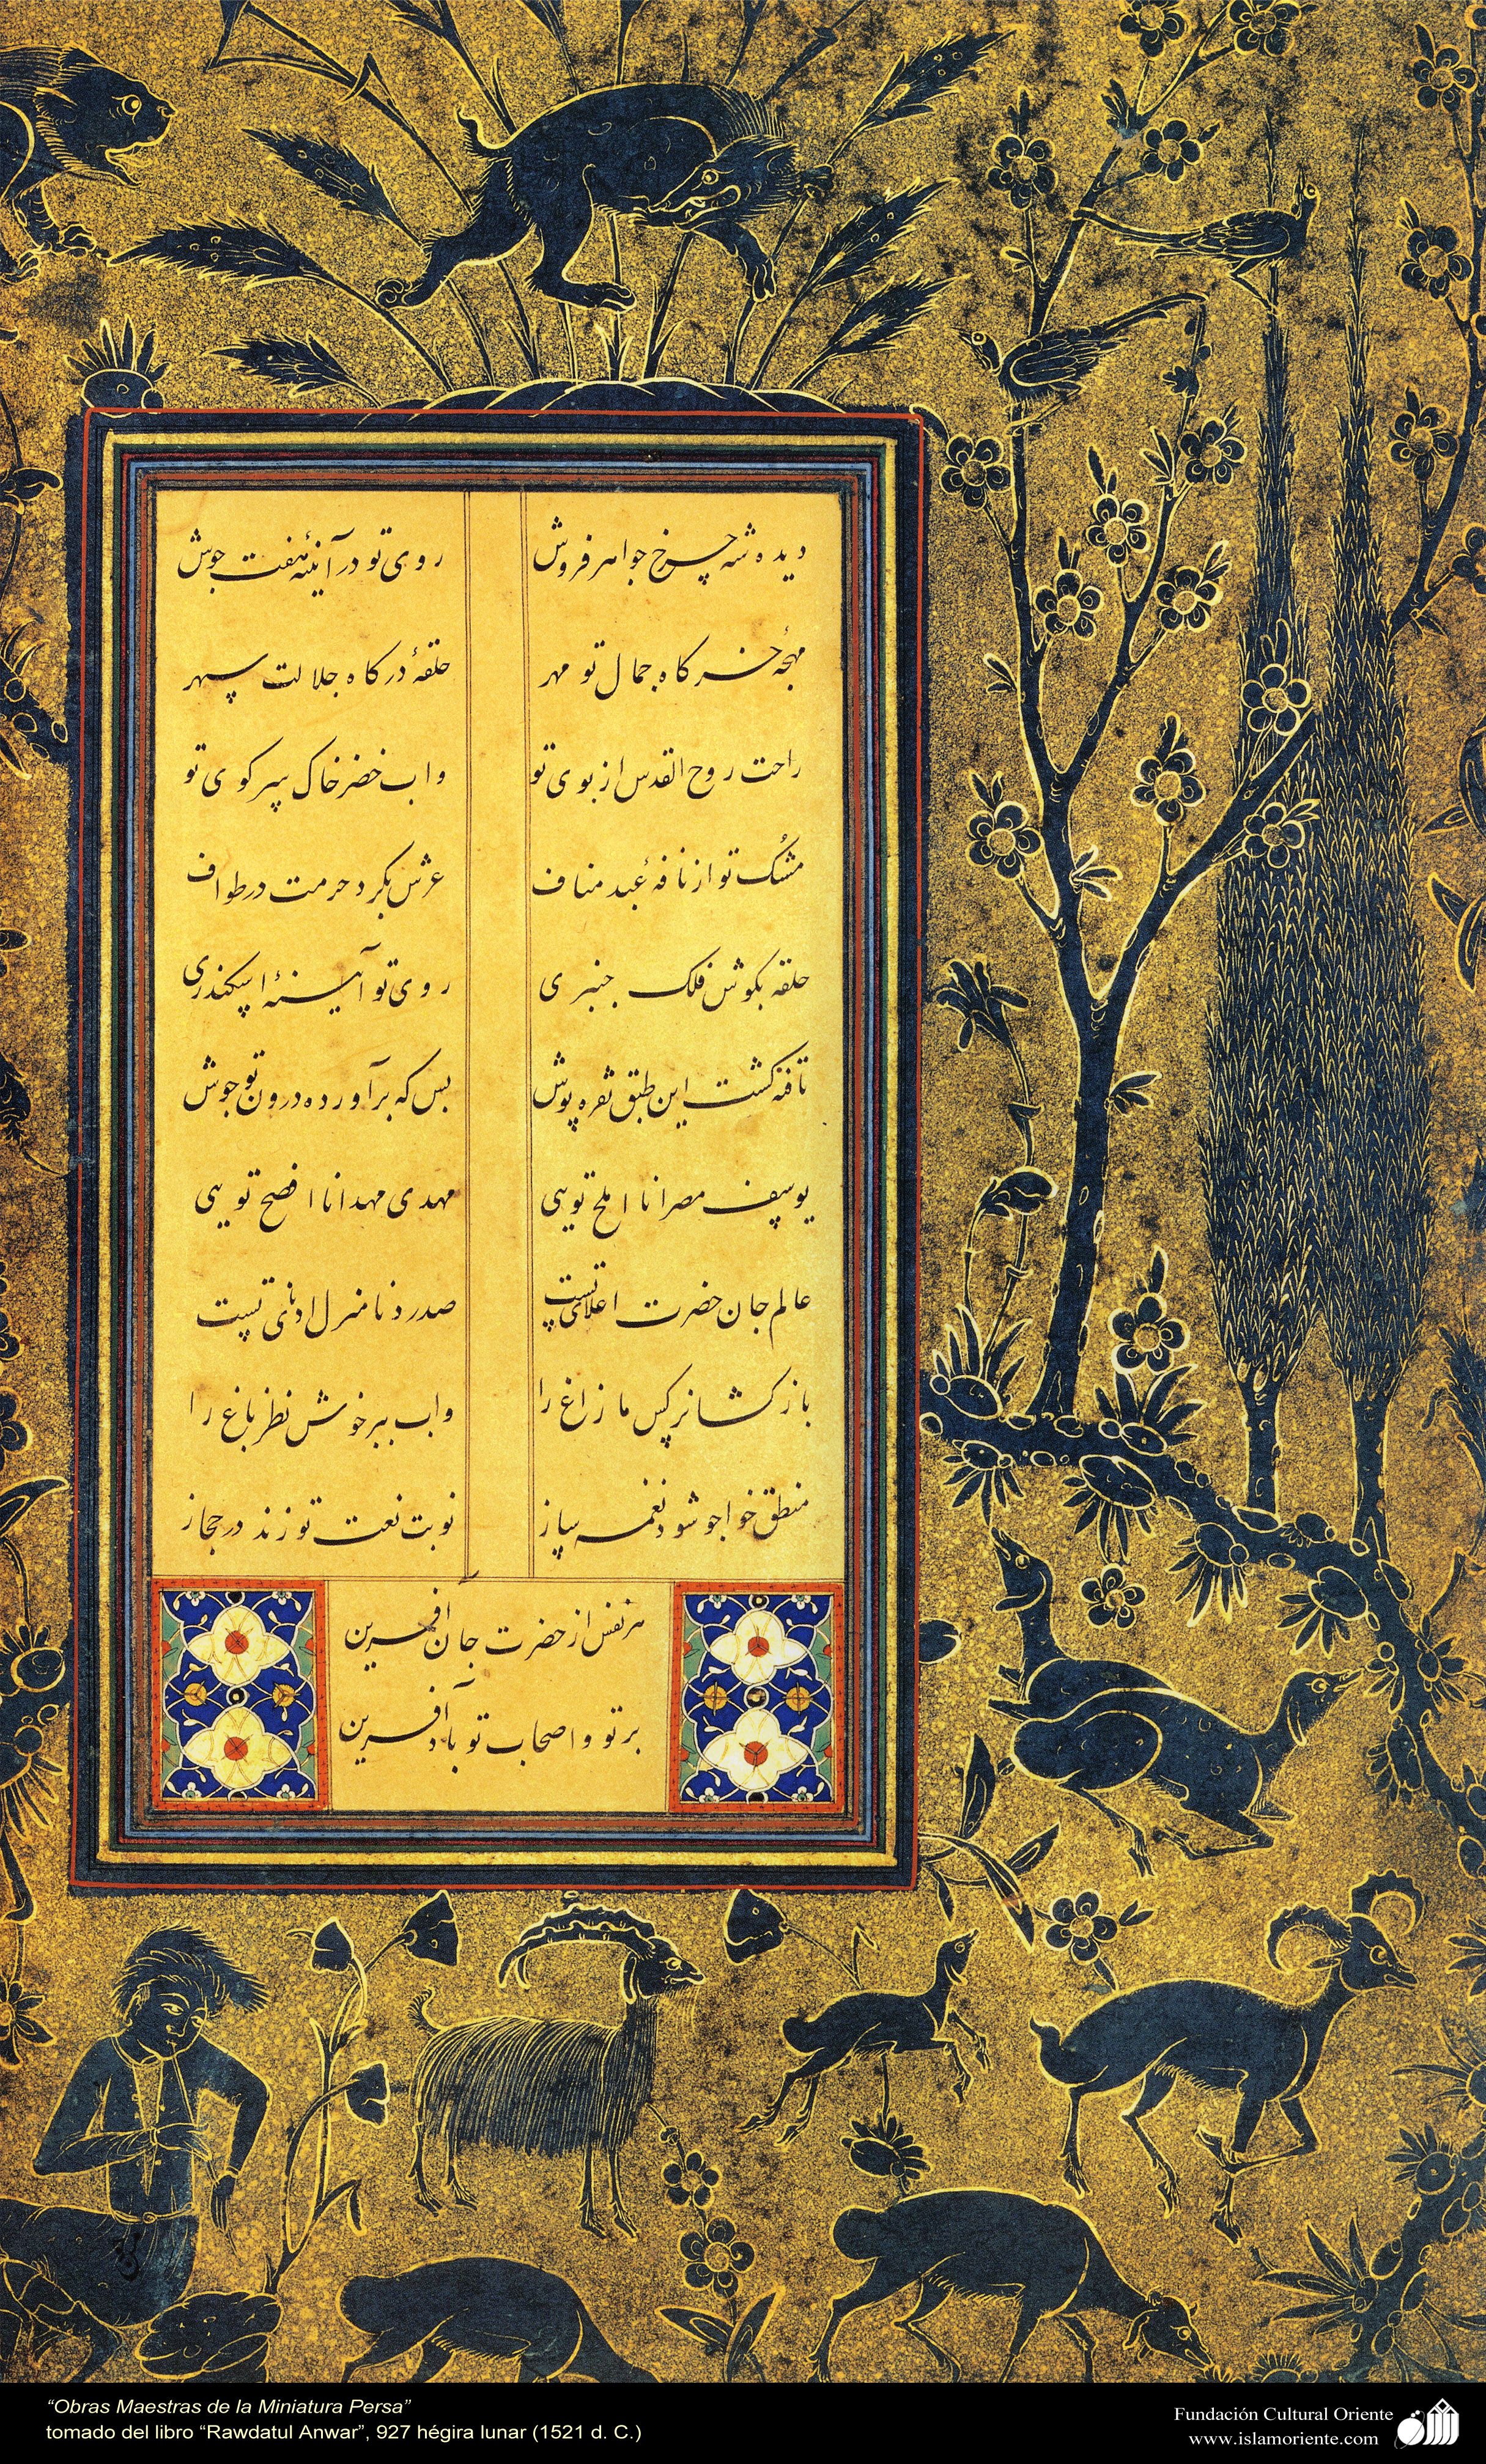 دیده شه چرخ جواهرفروش روی تو در آینهٔ هفت جوش
مهجهٔ خرکاه جمال تو مهر حلقهٔ درکاه جلالت سپهر
راحت روح القدس از بوی تو واب خضر خاک سر کوی تو
مشک تو از نافهٔ عبد مناف عرش بکرد حرمت در طواف
حلقه بکوش فلک چنبری روی تو آیینهٔ اسکندری
تافته کشت این طبق نقره پوش بس که برآورده درون تو جوش
یوسف مصر انا املح تویی مهدی مهد انا افصح تویی
عالم جان حضرت اعلای تست صدر دنا منزل ادنای تست
بازکشا نرکس ما زاغ را واب ببر خوش نظر باغ را
منطق خواجو شود نغمه ساز نوبت نعت تو زند در حجاز
هر نفس از حضرت جان آفرین
بر تو و اصحاب تو باد آفرین
“Obras Maestras de la Miniatura Persa”
tomado del libro “Rawdatul Anwar”, 927 hégira lunar (1521 d. C.)
Fundación Cultural Oriente
www.islamoriente.com